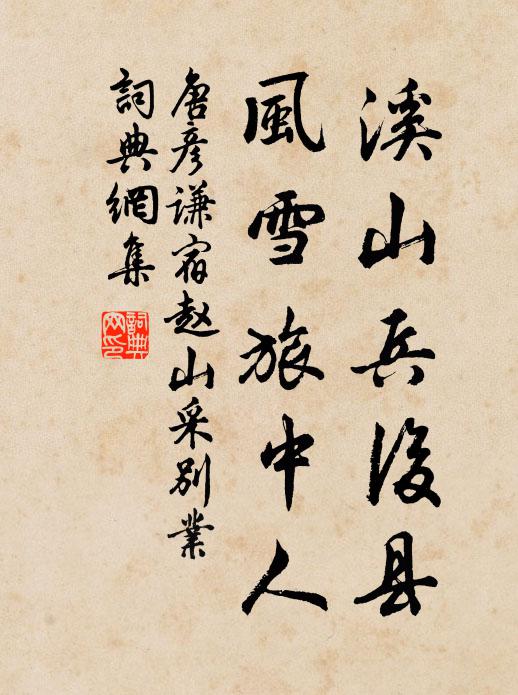 溪山兵後县
風雪旅中人
唐彦谦宿赵山采别業
詞典網集
詞典網印